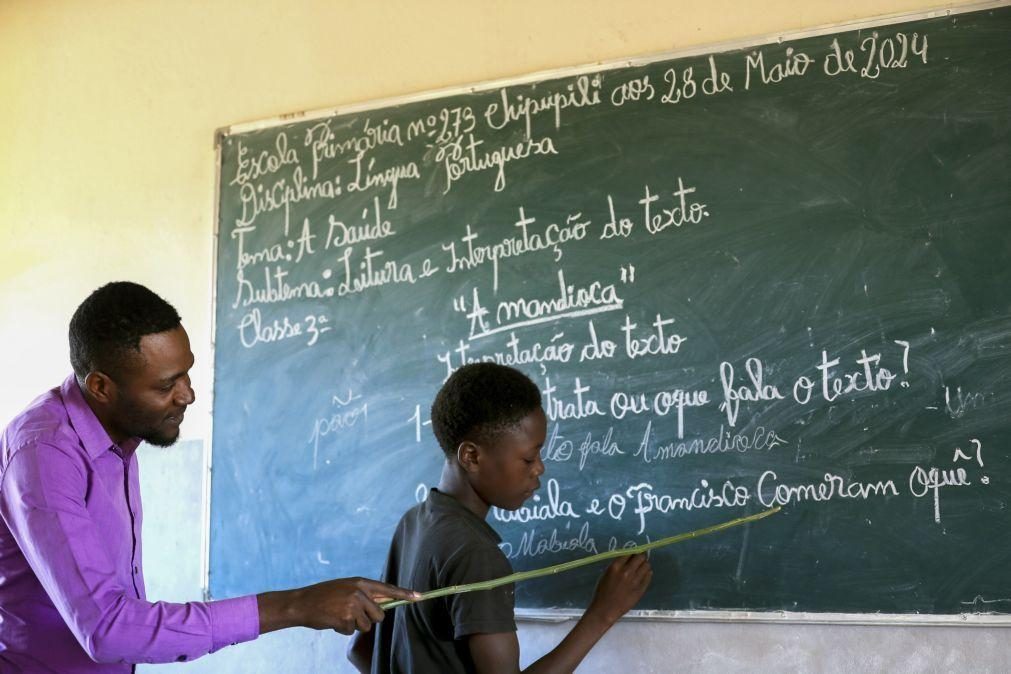 Escola Primária nº 273 Chipupili aos 28 de Maio de 2024
Disciplina: Língua Portuguesa
Tema: A Saúde
Subtema: Leitura e Interpretação do texto.
Classe 3ª
"A mandioca"
Interpretação do texto
1- trata ou oque fala o texto?
pão
Um
fala A mandioca
e o Francisco Comeram oquê?
Mabiala e o